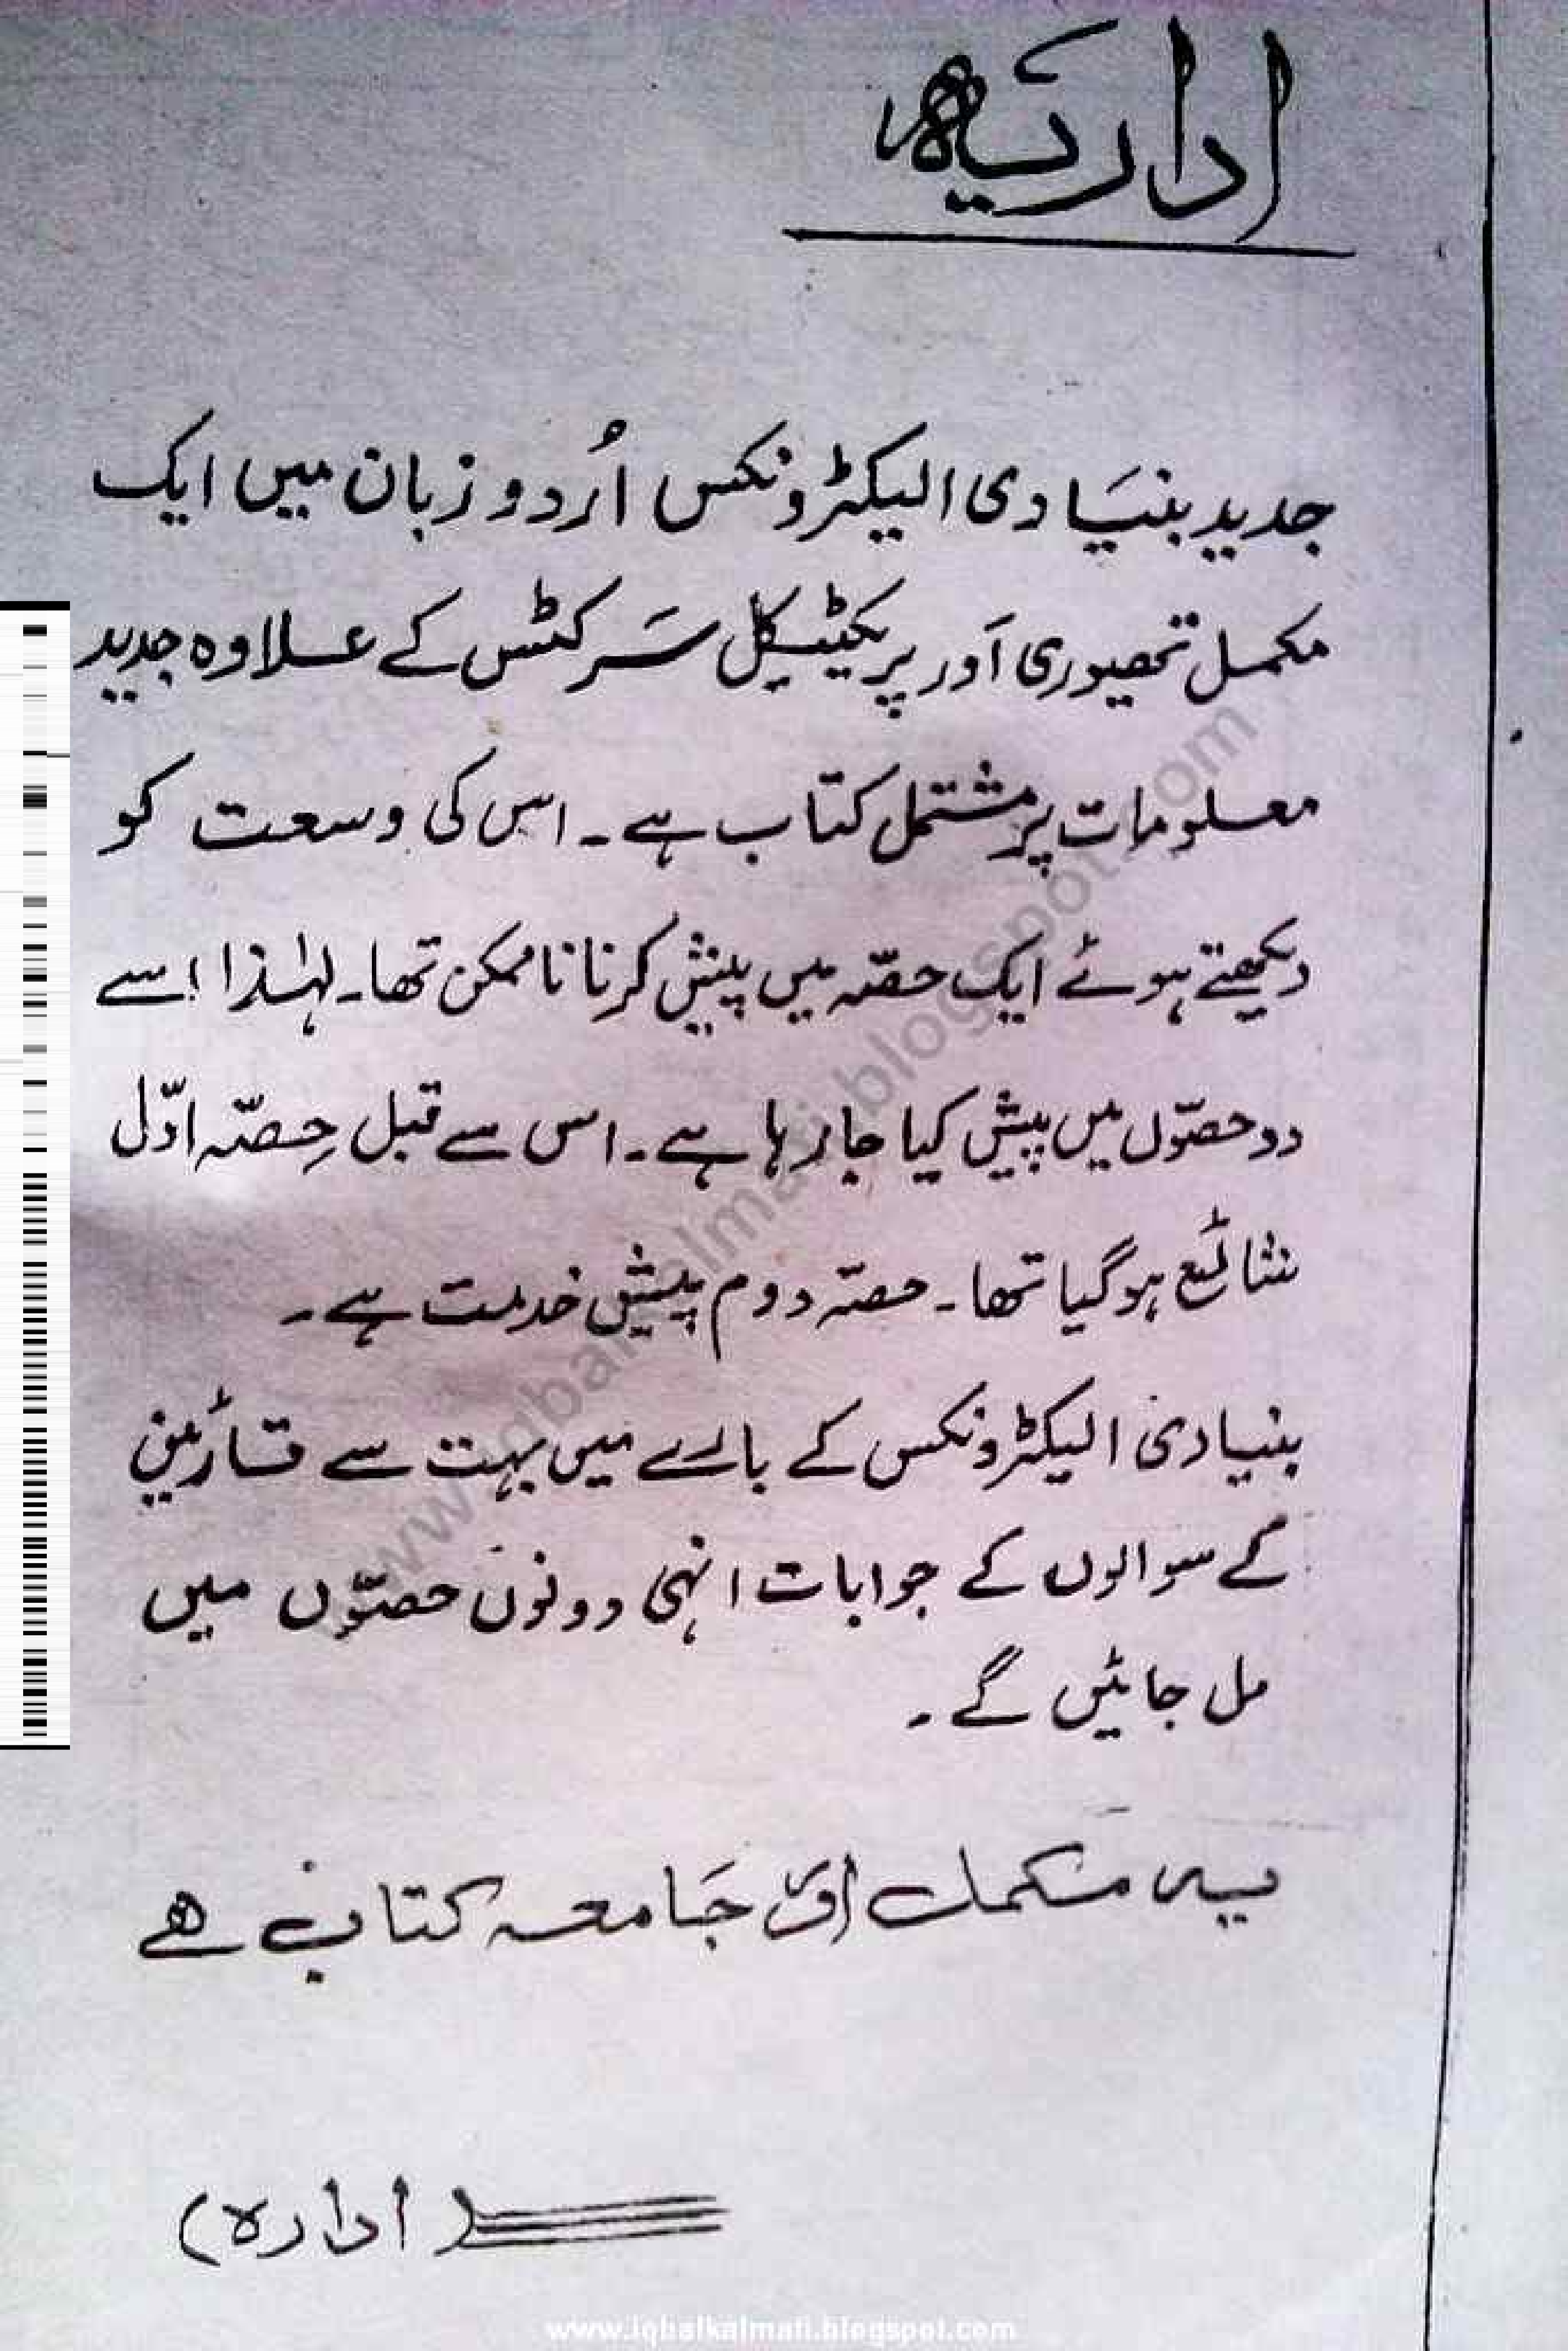 اداریہ
جدید بنیادی الیکٹرونکس اُردو زبان میں ایک
مکمل تھیوری اَور پریکٹیکل سَرکٹس کے علاوہ جدید
معلومات پر مشتمل کتاب ہے۔ اس کی وسعت کو
دیکھتے ہوئے ایک حصّہ میں پیش کرنا ناممکن تھا۔ لہٰذا اسے
دو حصّوں میں پیش کیا جا رہا ہے۔ اس سے قبل حِصّہ اوّل
شائع ہوگیا تھا۔ حصّہ دوم پیش خدمت ہے۔
بنیادی الیکٹرونکس کے بارے میں بہت سے قارئین
کے سوالوں کے جوابات انہی دونوں حصّوں میں
مل جائیں گے۔
یہ مکمل اور جَامعہ کتاب ہے
(ادارہ)
www.iqbalkalmati.blogspot.com
www.iqbalkalmati.blogspot.com